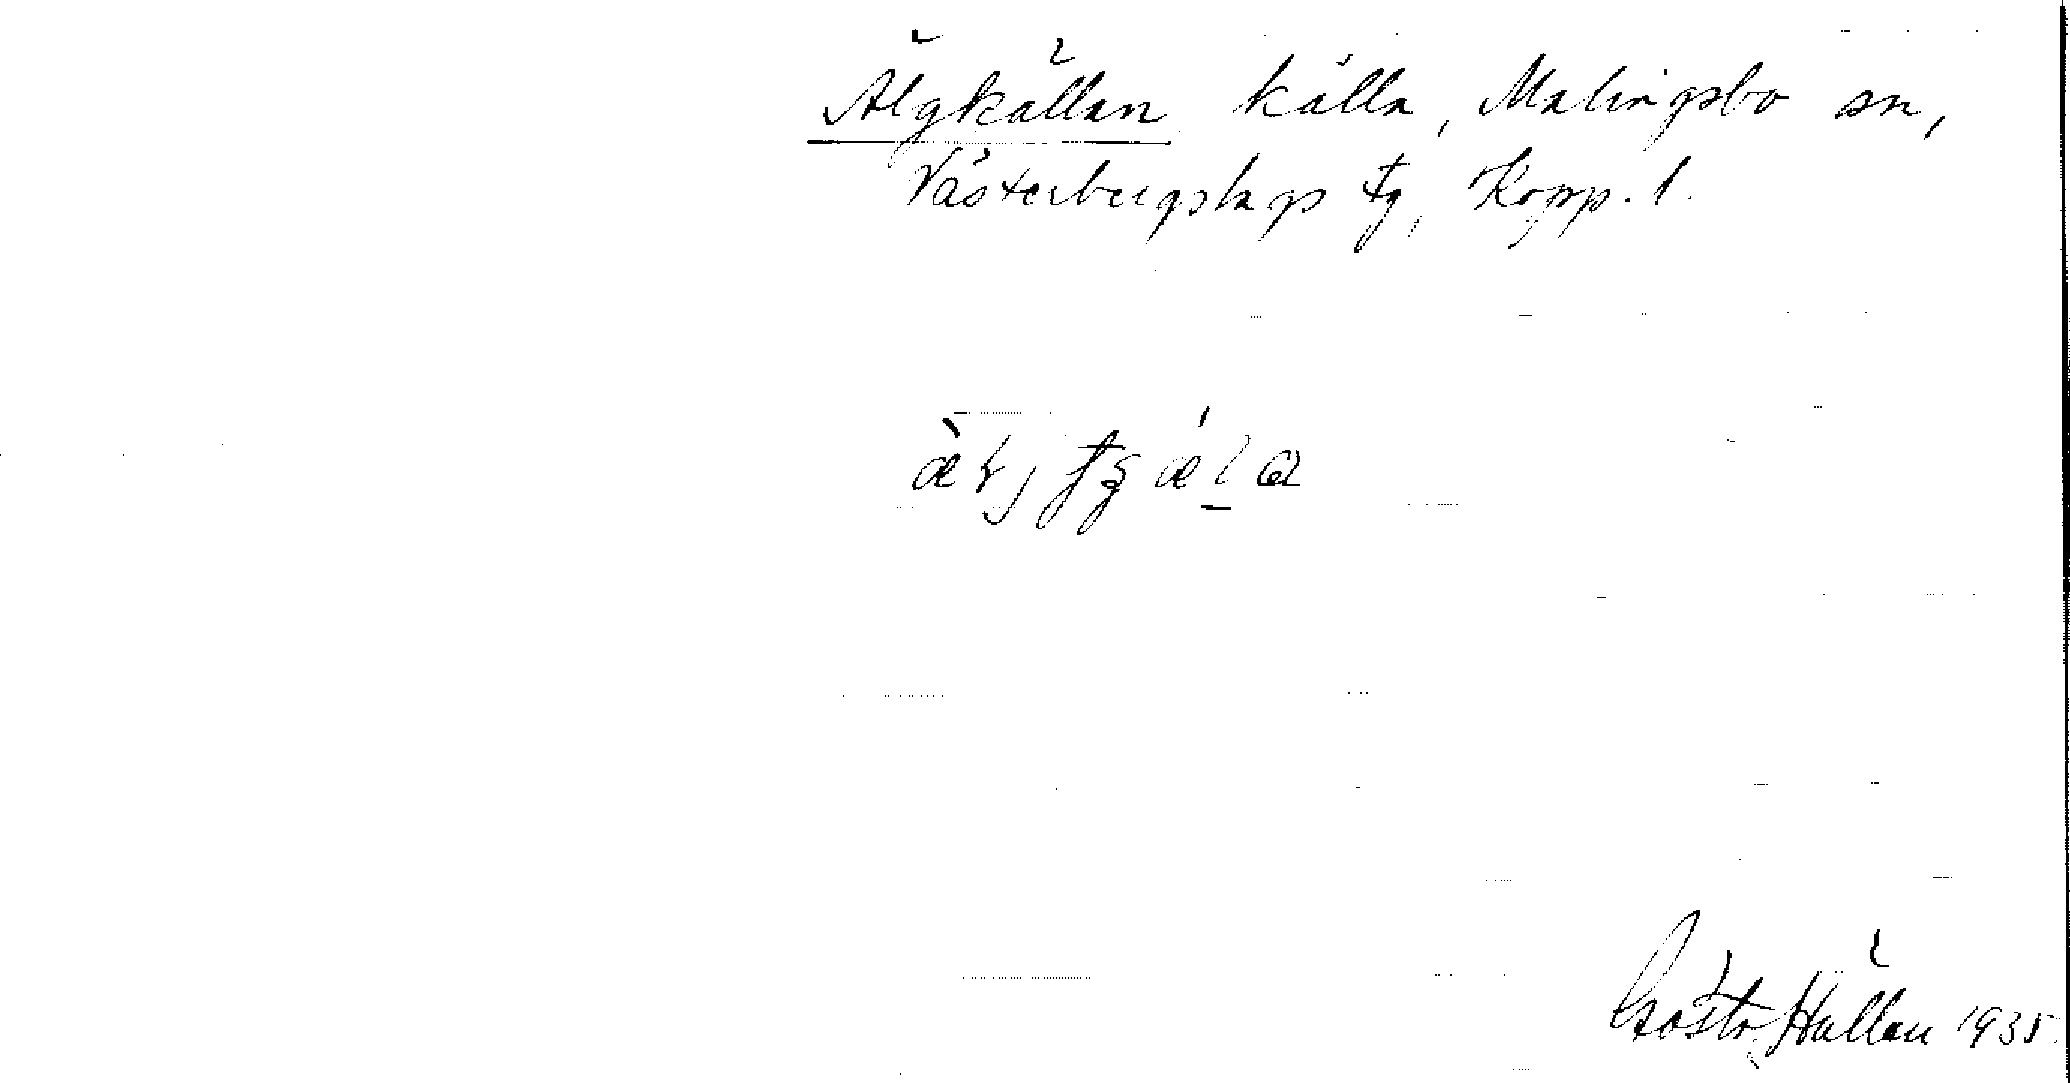 Älgkällan källa, Malingsbo sn,
Västerbergslags tg, Kopp. l.
Gösta Hållan 1935.